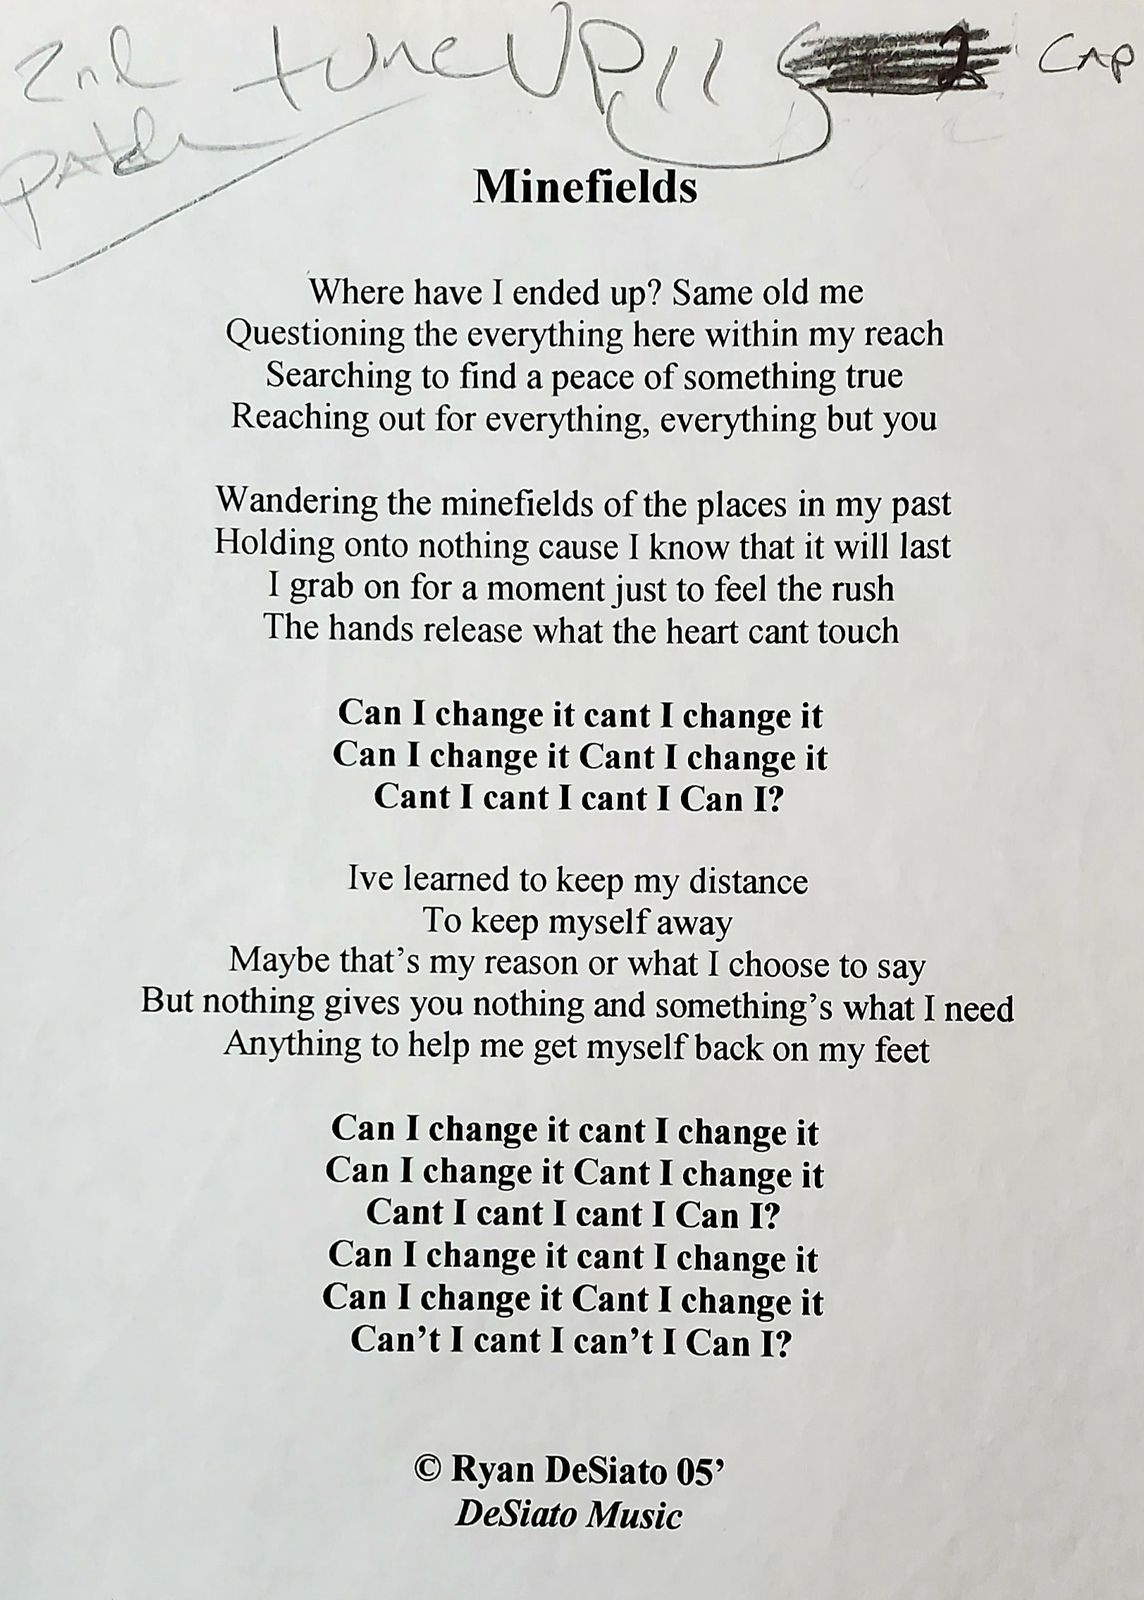 2nd tune UP!! 2 CAP
patch
Minefields
Where have I ended up? Same old me
Questioning the everything here within my reach
Searching to find a peace of something true
Reaching out for everything, everything but you
Wandering the minefields of the places in my past
Holding onto nothing cause I know that it will last
I grab on for a moment just to feel the rush
The hands release what the heart cant touch
Can I change it cant I change it
Can I change it Cant I change it
Cant I cant I cant I Can I?
Ive learned to keep my distance
To keep myself away
Maybe that’s my reason or what I choose to say
But nothing gives you nothing and something’s what I need
Anything to help me get myself back on my feet
Can I change it cant I change it
Can I change it Cant I change it
Cant I cant I cant I Can I?
Can I change it cant I change it
Can I change it Cant I change it
Can’t I cant I can’t I Can I?
© Ryan DeSiato 05’
DeSiato Music